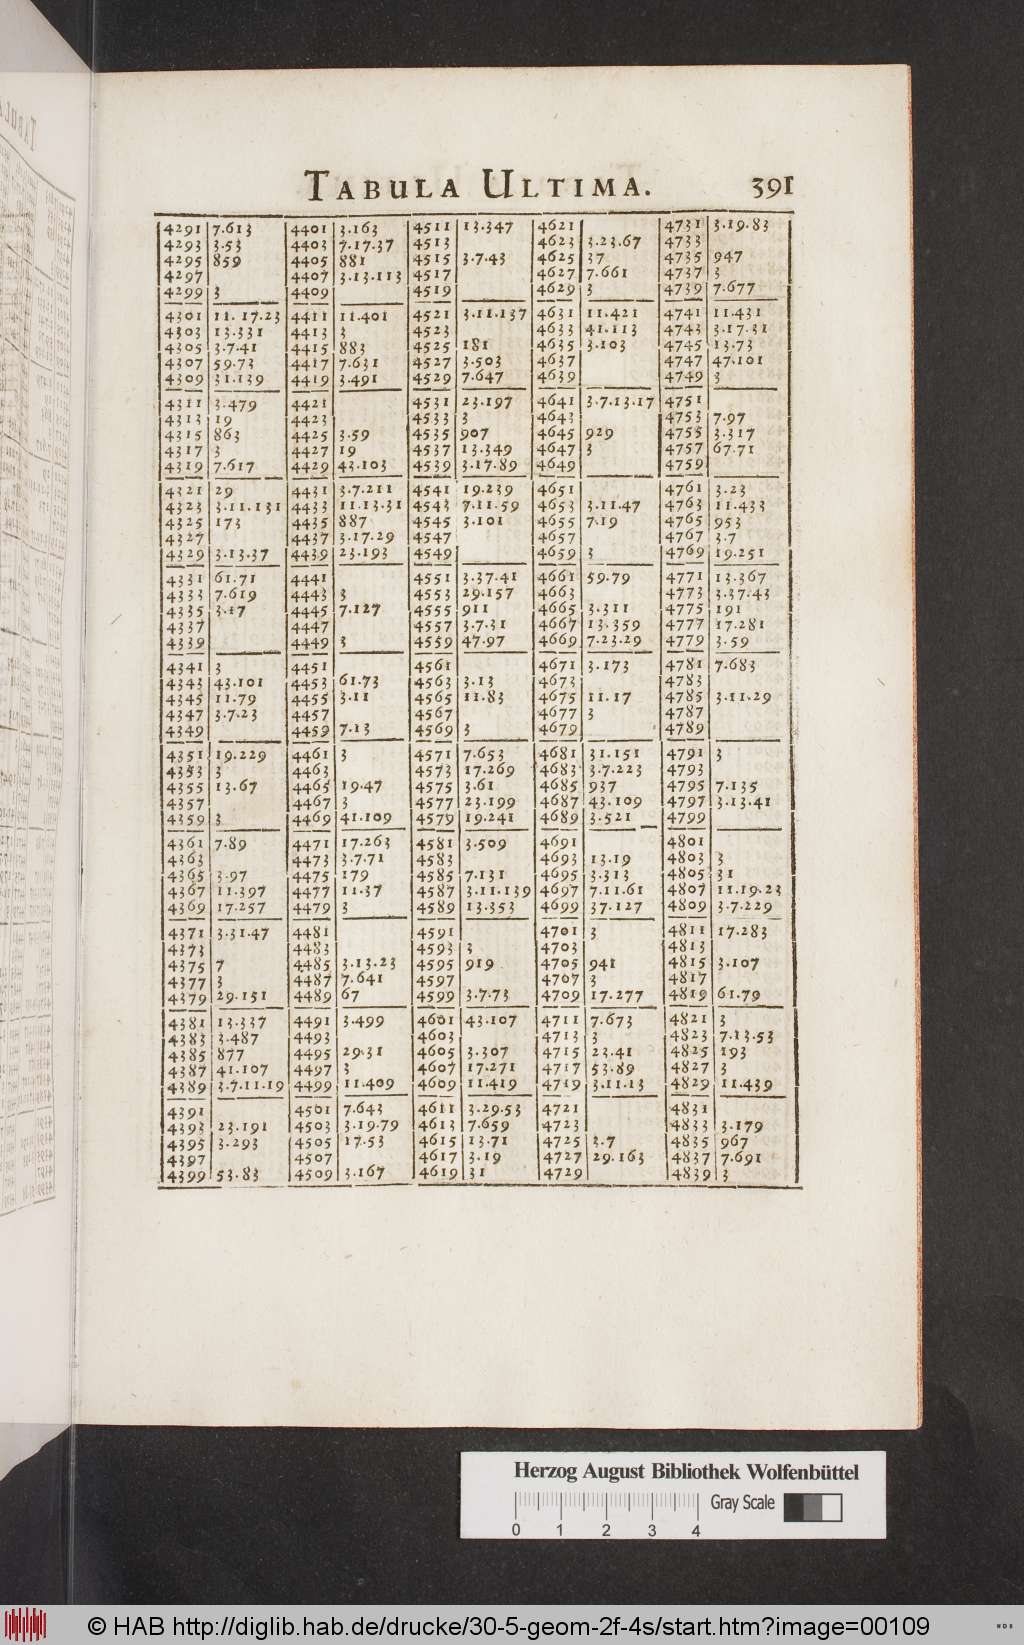 TABULA ULTIMA. 391
4291 7.613 4401 3.163 4511 13.347 4621 4731 3.19.83
4293 3.53 4403 7.17.37 4513 4623 3.23.67 4733
4295 859 4405 881 4515 3.7.43 4625 37 4735 947
4297 4407 3.13.113 4517 4627 7.661 4737 3
4299 3 4409 4519 4629 3 4739 7.677
4301 11.17.23 4411 11.401 4521 3.11.137 4631 11.421 4741 11.431
4303 13.331 4413 3 4523 4633 41.113 4743 3.17.31
4305 3.7.41 4415 883 4525 181 4635 3.103 4745 13.73
4307 59.73 4417 7.631 4527 3.503 4637 4747 47.101
4309 31.139 4419 3.491 4529 7.647 4639 4749 3
4311 3.479 4421 4531 23.197 4641 3.7.13.17 4751
4313 19 4423 4533 3 4643 4753 7.97
4315 863 4425 3.59 4535 907 4645 929 4755 3.317
4317 3 4427 19 4537 13.349 4647 3 4757 67.71
4319 7.617 4429 43.103 4539 3.17.89 4649 4759
4321 29 4431 3.7.211 4541 19.239 4651 4761 3.23
4323 3.11.131 4433 11.13.31 4543 7.11.59 4653 3.11.47 4763 11.433
4325 173 4435 887 4545 3.101 4655 7.19 4765 953
4327 4437 3.17.29 4547 4657 4767 3.7
4329 3.13.37 4439 23.193 4549 4659 3 4769 19.251
4331 61.71 4441 4551 3.37.41 4661 59.79 4771 13.367
4333 7.619 4443 3 4553 29.157 4663 4773 3.37.43
4335 3.17 4445 7.127 4555 911 4665 3.311 4775 191
4337 4447 4557 3.7.31 4667 13.359 4777 17.281
4339 4449 3 4559 47.97 4669 7.23.29 4779 3.59
4341 3 4451 4561 4671 3.173 4781 7.683
4343 43.101 4453 61.73 4563 3.13 4673 4783
4345 11.79 4455 3.11 4565 11.83 4675 11.17 4785 3.11.29
4347 3.7.23 4457 4567 4677 3 4787
4349 4459 7.13 4569 3 4679 4789
4351 19.229 4461 3 4571 7.653 4681 31.151 4791 3
4353 3 4463 4573 17.269 4683 3.7.223 4793
4355 13.67 4465 19.47 4575 3.61 4685 937 4795 7.135
4357 4467 3 4577 23.199 4687 43.109 4797 3.13.41
4359 3 4469 41.109 4579 19.241 4689 3.521 4799
4361 7.89 4471 17.263 4581 3.509 4691 4801
4363 4473 3.7.71 4583 4693 13.19 4803 3
4365 3.97 4475 179 4585 7.131 4695 3.313 4805 31
4367 11.397 4477 11.37 4587 3.11.139 4697 7.11.61 4807 11.19.23
4369 17.257 4479 3 4589 13.353 4699 37.127 4809 3.7.229
4371 3.31.47 4481 4591 4701 3 4811 17.283
4373 4483 4593 3 4703 4813
4375 7 4485 3.13.23 4595 919 4705 941 4815 3.107
4377 3 4487 7.641 4597 4707 3 4817
4379 29.151 4489 67 4599 3.7.73 4709 17.277 4819 61.79
4381 13.337 4491 3.499 4601 43.107 4711 7.673 4821 3
4383 3.487 4493 4603 4713 3 4823 7.13.53
4385 877 4495 29.31 4605 3.307 4715 23.41 4825 193
4387 41.107 4497 3 4607 17.271 4717 53.89 4827 3
4389 3.7.11.19 4499 11.409 4609 11.419 4719 3.11.13 4829 11.439
4391 4501 7.643 4611 3.29.53 4721 4831
4393 23.191 4503 3.19.79 4613 7.659 4723 4833 3.179
4395 3.293 4505 17.53 4615 13.71 4725 3.7 4835 967
4397 4507 4617 3.19 4727 29.163 4837 7.691
4399 53.83 4509 3.167 4619 31 4729 4839 3
Herzog August Bibliothek Wolfenbüttel
Gray Scale
0 1 2 3 4
© HAB http://diglib.hab.de/drucke/30-5-geom-2f-4s/start.htm?image=00109